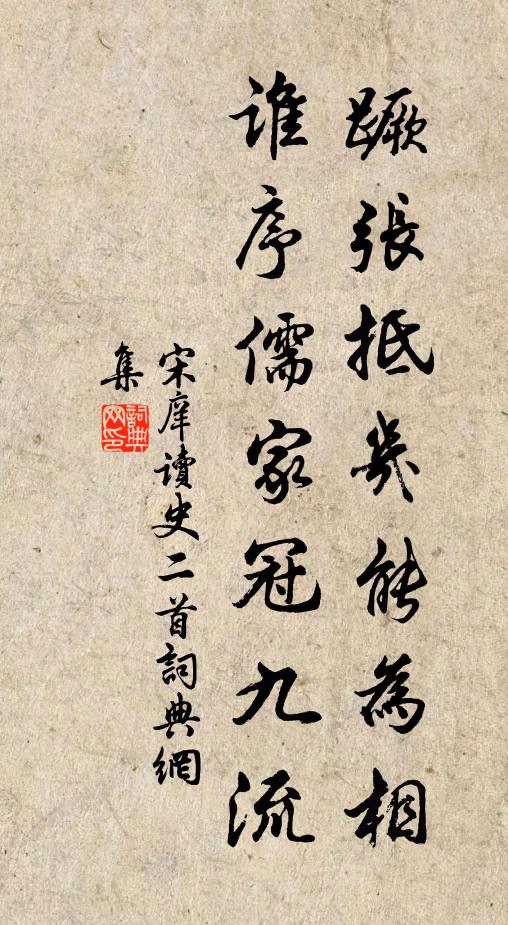 蹶張抵幾能為相
誰序儒家冠九流
宋庠讀史二首詞典網
集
詞典
网印